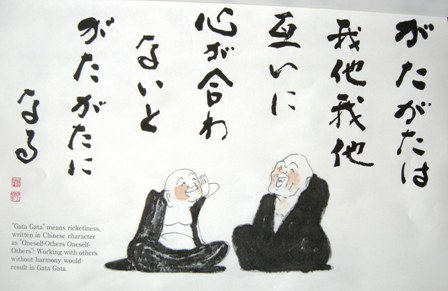 がたがたは
我他我他
互いに
心が合わ
ないと
がたがたに
なる
"Gata Gata" means ricketiness,
written in Chinese character
as "Oneself-Others Oneself-
Others": Working with others
without harmony would
result in Gata Gata.